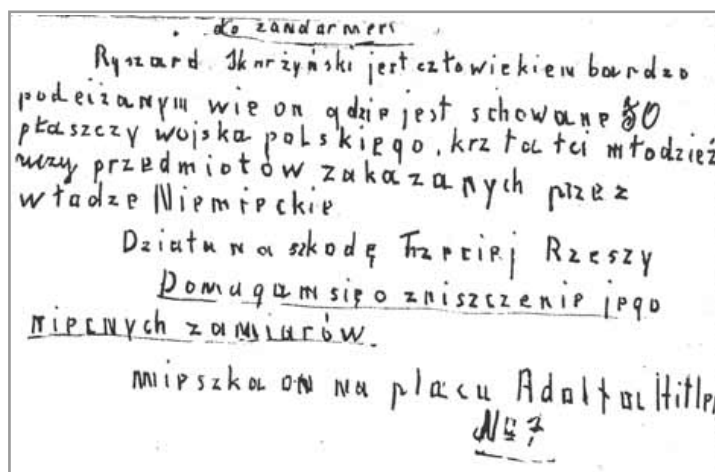 do żandarmeri
Ryszard. Skarżyński jest człowiekiem bardzo
podeiżanym wie on gdzie jest schowane 50
płaszczy wojska polskiego, krztałci młodzież
uczy przedmiotów zakazanych przez
władze Niemieckie
Działa na szkodę Trzeciej Rzeszy
Domagam się o zniszczenie jego
niecnych zamiarów.
mieszka on na placu Adolfa Hitler
№ 7